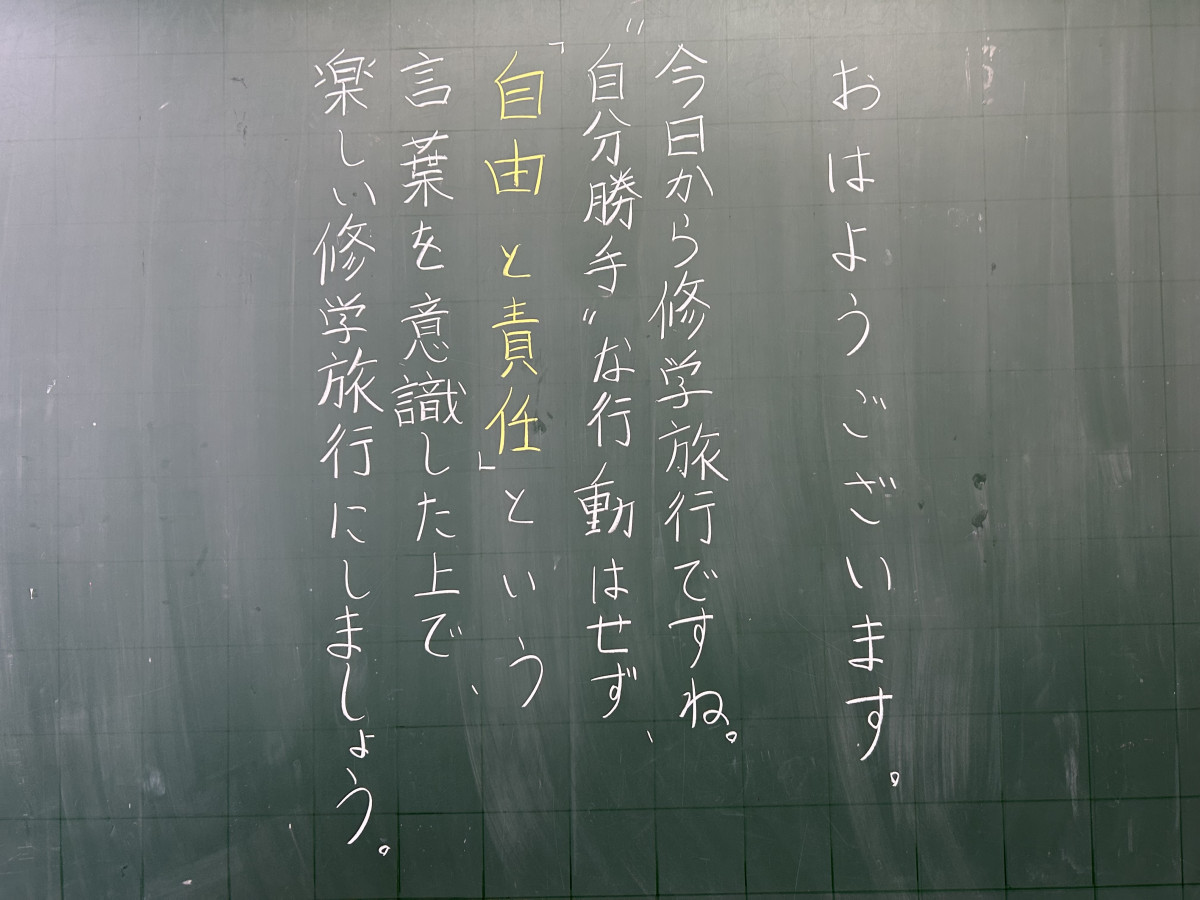 おはようございます。
今日から修学旅行ですね。
"自分勝手"な行動はせず、
「自由と責任」という
言葉を意識した上で、
楽しい修学旅行にしましょう。